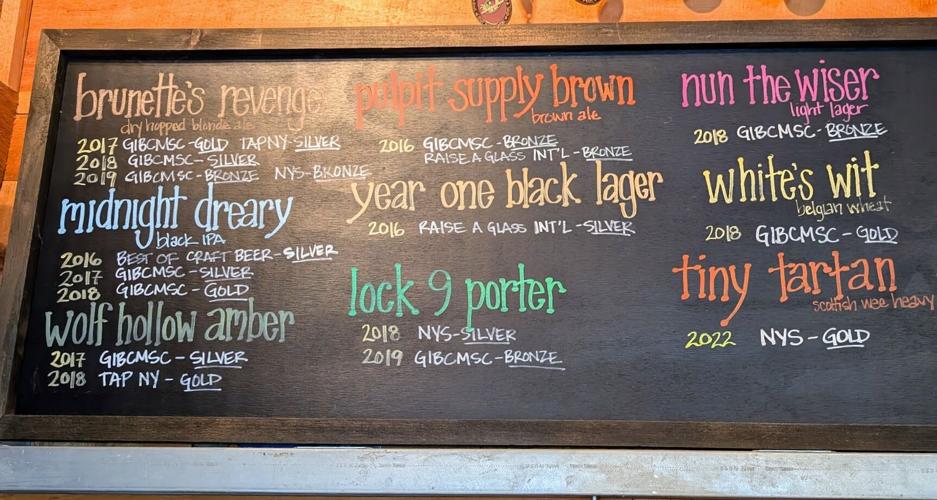 brunette's revenge
dry hopped blonde ale
2017 GIBCMSC-GOLD TAPNY-SILVER
2018 GIBCMSC-SILVER
2019 GIBCMSC-BRONZE NYS-BRONZE
midnight dreary
black IPA
2016 BEST OF CRAFT BEER-SILVER
2017 GIBCMSC-SILVER
2018 GIBCMSC-GOLD
wolf hollow amber
2017 GIBCMSC-SILVER
2018 TAP NY-GOLD
pulpit supply brown
brown ale
2016 GIBCMSC-BRONZE
RAISE A GLASS INT'L-BRONZE
year one black lager
2016 RAISE A GLASS INT'L-SILVER
lock 9 porter
2018 NYS-SILVER
2019 GIBCMSC-BRONZE
nun the wiser
light lager
2018 GIBCMSC-BRONZE
white's wit
belgian wheat
2018 GIBCMSC-GOLD
tiny tartan
scottish wee heavy
2022 NYS-GOLD